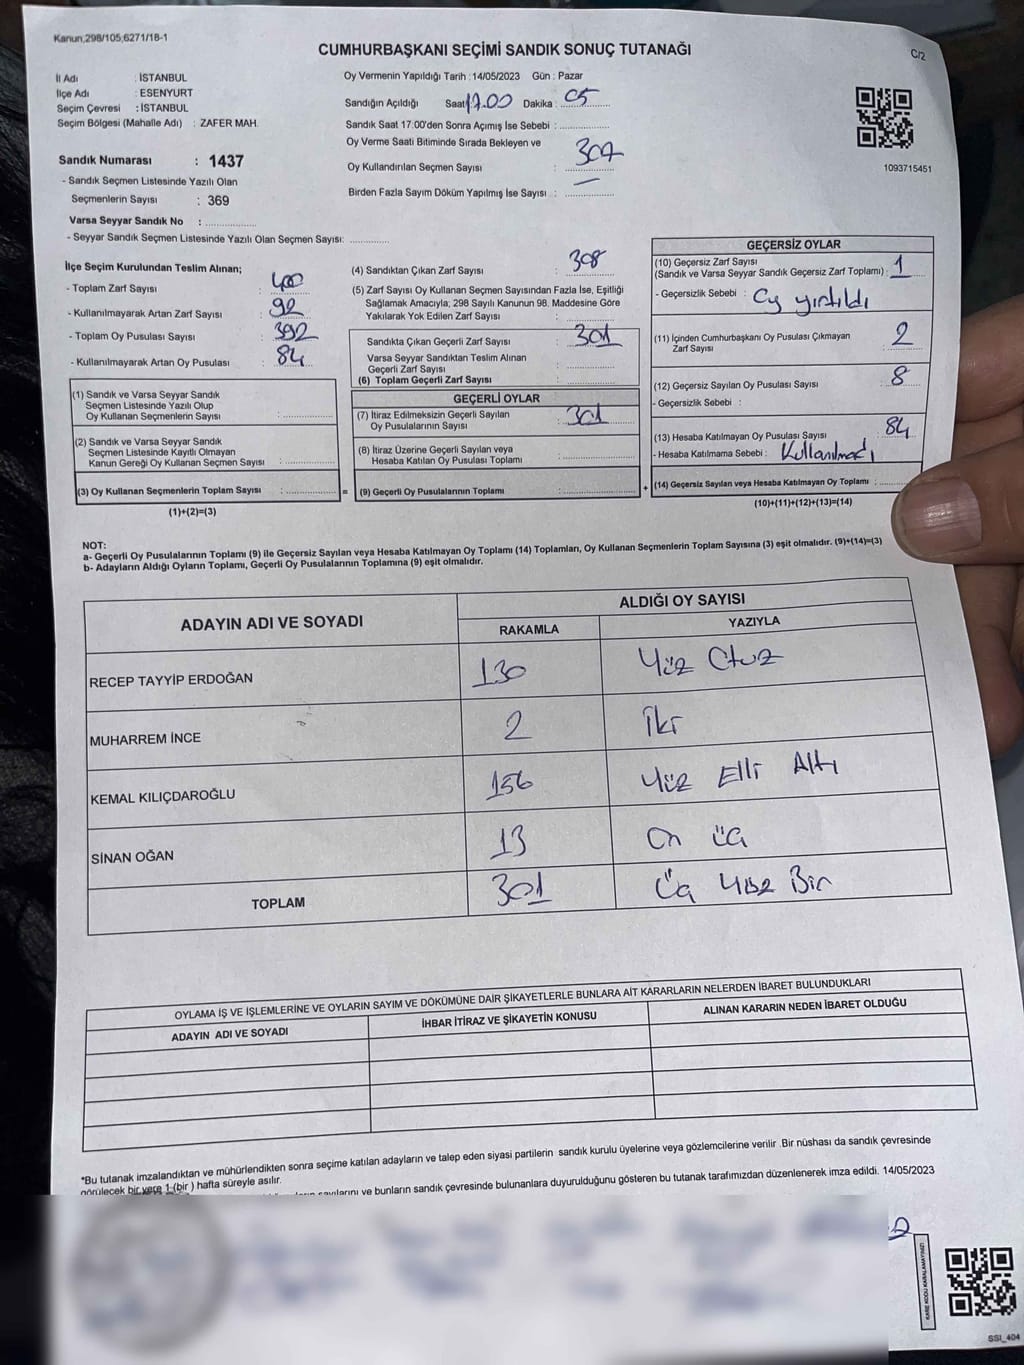 Kanun;298/105,6271/18-1
CUMHURBAŞKANI SEÇİMİ SANDIK SONUÇ TUTANAĞI
C/2
İl Adı : İSTANBUL
İlçe Adı : ESENYURT
Seçim Çevresi : İSTANBUL
Seçim Bölgesi (Mahalle Adı) : ZAFER MAH.
Sandık Numarası : 1437
- Sandık Seçmen Listesinde Yazılı Olan
Seçmenlerin Sayısı : 369
Varsa Seyyar Sandık No :
- Seyyar Sandık Seçmen Listesinde Yazılı Olan Seçmen Sayısı:
Oy Vermenin Yapıldığı Tarih : 14/05/2023 Gün : Pazar
Sandığın Açıldığı Saat 17.00 Dakika : 05
Sandık Saat 17:00'den Sonra Açımış İse Sebebi :
Oy Verme Saati Bitiminde Sırada Bekleyen ve
Oy Kullandırılan Seçmen Sayısı : 307
Birden Fazla Sayım Döküm Yapılmış İse Sayısı : —
1093715451
İlçe Seçim Kurulundan Teslim Alınan;
- Toplam Zarf Sayısı : 400
- Kullanılmayarak Artan Zarf Sayısı : 92
- Toplam Oy Pusulası Sayısı : 392
- Kullanılmayarak Artan Oy Pusulası : 84
(1) Sandık ve Varsa Seyyar Sandık
Seçmen Listesinde Yazılı Olup
Oy Kullanan Seçmenlerin Sayısı :
(2) Sandık ve Varsa Seyyar Sandık
Seçmen Listesinde Kayıtlı Olmayan
Kanun Gereği Oy Kullanan Seçmen Sayısı :
(3) Oy Kullanan Seçmenlerin Toplam Sayısı : =
(1)+(2)=(3)
(4) Sandıktan Çıkan Zarf Sayısı : 308
(5) Zarf Sayısı Oy Kullanan Seçmen Sayısından Fazla İse, Eşitliği
Sağlamak Amacıyla; 298 Sayılı Kanunun 98. Maddesine Göre
Yakılarak Yok Edilen Zarf Sayısı :
Sandıkta Çıkan Geçerli Zarf Sayısı : 301
Varsa Seyyar Sandıktan Teslim Alınan
Geçerli Zarf Sayısı :
(6) Toplam Geçerli Zarf Sayısı :
GEÇERLİ OYLAR
(7) İtiraz Edilmeksizin Geçerli Sayılan
Oy Pusulalarının Sayısı : 301
(8) İtiraz Üzerine Geçerli Sayılan veya
Hesaba Katılan Oy Pusulası Toplamı :
(9) Geçerli Oy Pusulalarının Toplamı : +
GEÇERSİZ OYLAR
(10) Geçersiz Zarf Sayısı
(Sandık ve Varsa Seyyar Sandık Geçersiz Zarf Toplamı) : 1
- Geçersizlik Sebebi : Oy yırtıldı
(11) İçinden Cumhurbaşkanı Oy Pusulası Çıkmayan
Zarf Sayısı : 2
(12) Geçersiz Sayılan Oy Pusulası Sayısı : 8
- Geçersizlik Sebebi :
(13) Hesaba Katılmayan Oy Pusulası Sayısı : 84
- Hesaba Katılmama Sebebi : Kullanılmadı
(14) Geçersiz Sayılan veya Hesaba Katılmayan Oy Toplamı :
(10)+(11)+(12)+(13)=(14)
NOT:
a- Geçerli Oy Pusulalarının Toplamı (9) ile Geçersiz Sayılan veya Hesaba Katılmayan Oy Toplamı (14) Toplamları, Oy Kullanan Seçmenlerin Toplam Sayısına (3) eşit olmalıdır. (9)+(14)=(3)
b- Adayların Aldığı Oyların Toplamı, Geçerli Oy Pusulalarının Toplamına (9) eşit olmalıdır.
ADAYIN ADI VE SOYADI
ALDIĞI OY SAYISI
RAKAMLA YAZIYLA
RECEP TAYYİP ERDOĞAN 130 Yüz Otuz
MUHARREM İNCE 2 İki
KEMAL KILIÇDAROĞLU 156 Yüz Elli Altı
SİNAN OĞAN 13 On üç
TOPLAM 301 Üç Yüz Bir
OYLAMA İŞ VE İŞLEMLERİNE VE OYLARIN SAYIM VE DÖKÜMÜNE DAİR ŞİKAYETLERLE BUNLARA AİT KARARLARIN NELERDEN İBARET BULUNDUKLARI
ADAYIN ADI VE SOYADI İHBAR İTİRAZ VE ŞİKAYETİN KONUSU ALINAN KARARIN NEDEN İBARET OLDUĞU
*Bu tutanak imzalandıktan ve mühürlendikten sonra seçime katılan adayların ve talep eden siyasi partilerin sandık kurulu üyelerine veya gözlemcilerine verilir .Bir nüshası da sandık çevresinde
görülecek bir yere 1 (bir ) hafta süreyle asılır.
sayılarını ve bunların sandık çevresinde bulunanlara duyurulduğunu gösteren bu tutanak tarafımızdan düzenlenerek imza edildi. 14/05/2023
KARE KODU KARALAMAYINIZ!
SSI_404